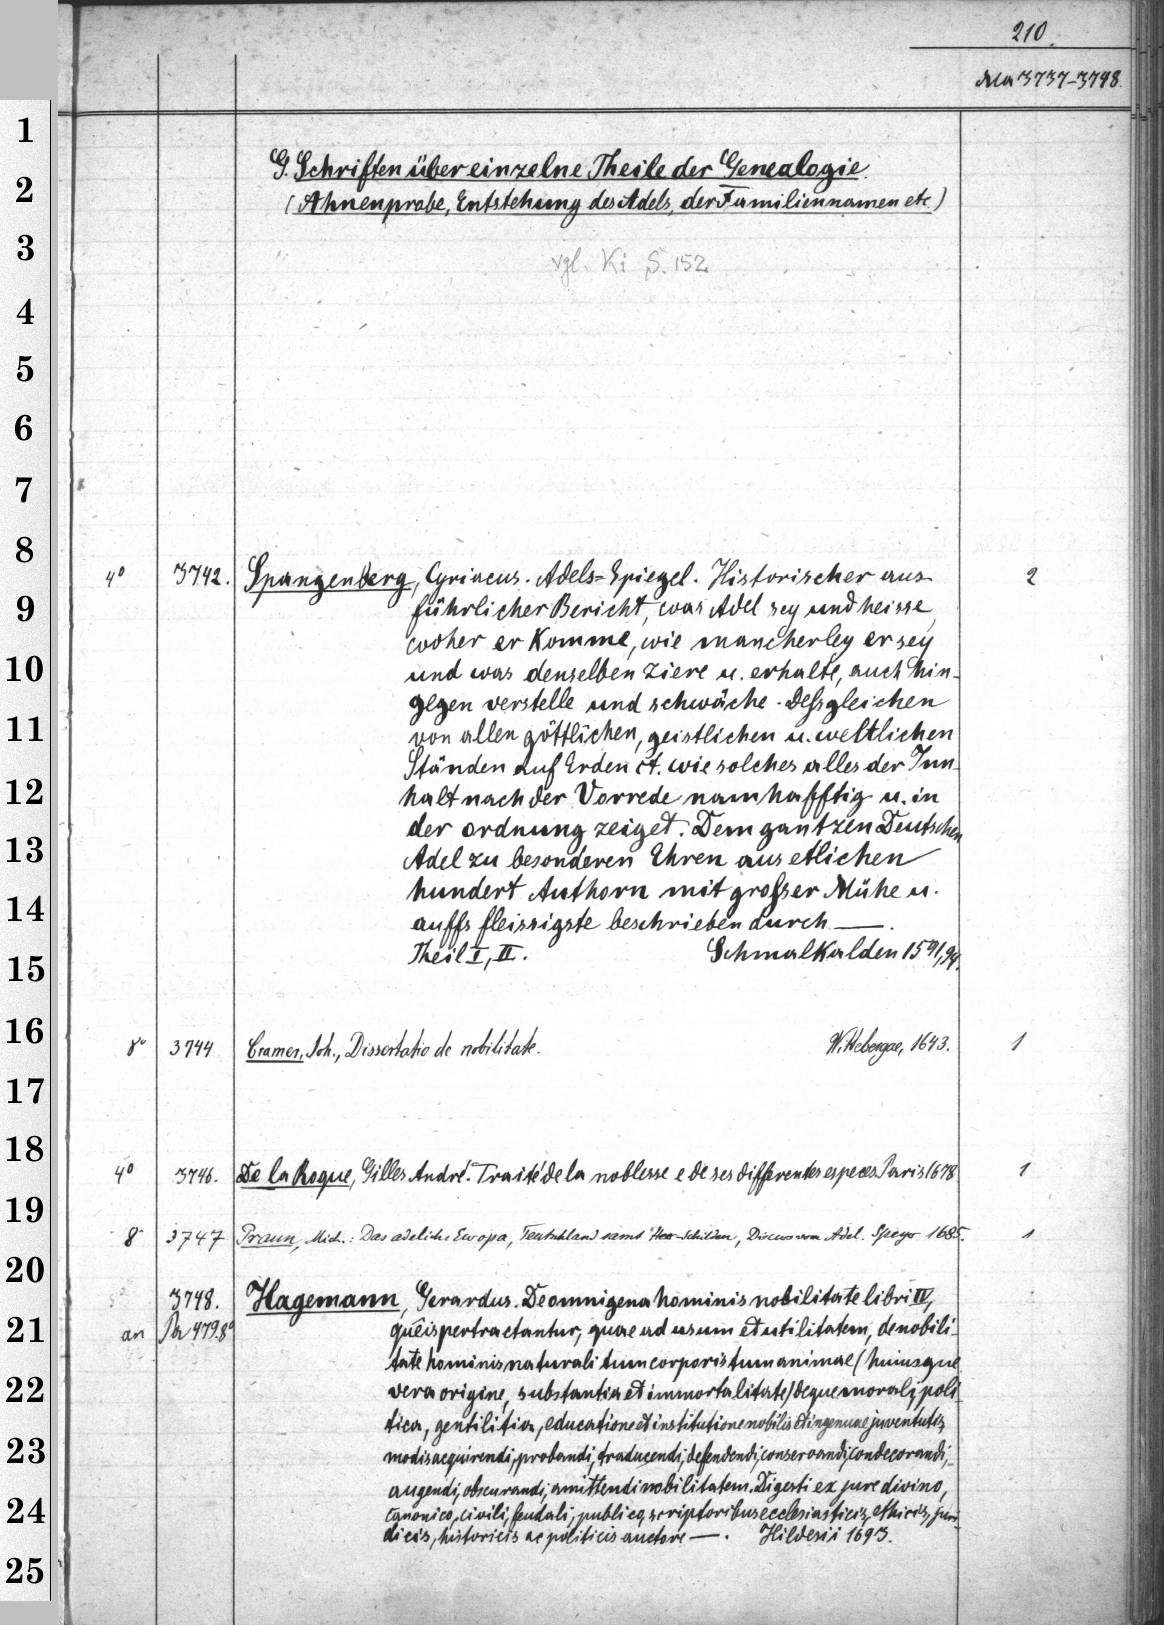 210.
Ma 3737-3748.
1
G. Schriften über einzelne Theile der Genealogie.
2
(Ahnenprobe, Entstehung des Adels, der Familiennamen etc.)
3
vgl. Ki S. 152
4
5
6
7
8
4° 3742. Spangenberg, Cyriacus. Adels=Spiegel. Historischer aus- 2
9
führlicher Bericht, was Adel sey und heisse,
woher er Komme, wie mancherley er sey
10
und was denselben ziere u. erhalte, auch hin-
gegen verstelle und schwäche. Deßgleichen
11
von allen göttlichen, geistlichen u. weltlichen
Ständen auf Erden ct. wie solches alles der Inn-
12
halt nach der Vorrede namhafftig u. in
der ordnung zeiget. Dem gantzen Deutschen
13
Adel zu besonderen Ehren aus etlichen
hundert Authorn mit großer Mühe u.
14
auffs fleissigste beschrieben durch —.
Theil I, II. Schmalkalden 1591, 94.
15
16
8° 3744 Cramer, Joh., Dissertatio de nobilitate. Wittebergae, 1643. 1
17
18
4° 3746. De la Roque, Gilles André. Traité de la noblesse e de ses differentes especes. Paris 1678 1
19
8° 3747 Praun, Mich.: Das adeliche Europa, Teutschland samt Heer-Schilden, Discurs vom Adel. Speyer 1685. 1
20
3748. Hagemann, Gerardus. De omnigena hominis nobilitate libri IV,
21
an Pa 479.8° quêis pertractantur, quae ad usum et utilitatem, de nobili-
tate hominis naturali tum corporis tum animae (huiusque
22
vera origine, substantia et immortalitate) deque morali, poli-
tica, gentilitia, educatione et institutione nobilis et ingenuae juventutis,
23
modis acquirendi, probandi, traducendi, defendendi, conservandi, condecorandi,
augendi, obscurandi, amittendi nobilitatem. Digesti ex jure divino,
24
canonico, civili, feudali, publico, scriptoribus ecclesiasticis, ethicis, juri-
dicis, historicis ac politicis auctore —. Hildesii 1693.
25